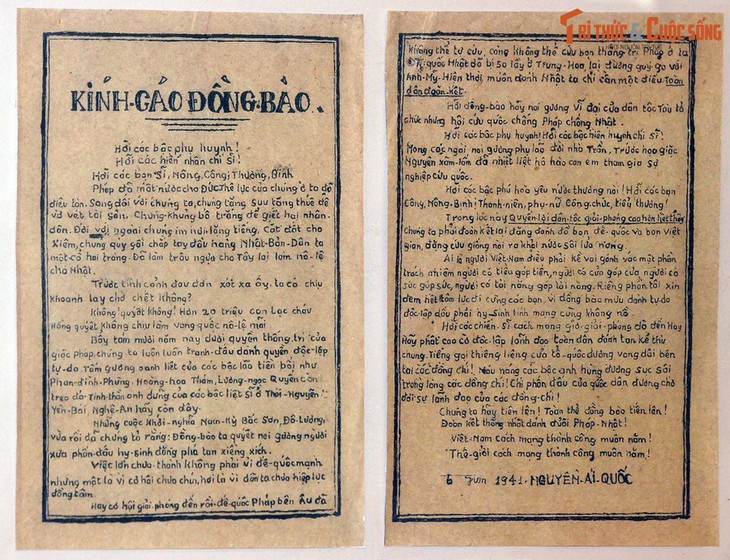 KÍNH-CÁO ĐỒNG-BÀO.
Hỡi các bậc phụ huynh!
Hỡi các hiền nhân chí sĩ!
Hỡi các bạn Sĩ, Nông, Công, Thương, Binh
Pháp đã mất nước cho Đức Thế lực của chúng ở ta đã
điêu tàn. Song đối với chúng ta, chúng tăng sưu tăng thuế để
vơ vét tài sản. Chúng khủng bố trắng để giết hại nhân-
dân. Đối với ngoài chúng im hơi lặng tiếng, cắt đất cho
Xiêm, chúng quỳ gối chắp tay đầu hàng Nhật-Bản-Dân ta
một cổ hai tròng. Đã làm trâu ngựa cho Tây lại làm nô-lệ
cho Nhật.
Trước tình cảnh đau đớn xót xa ấy, ta có chịu
khoanh tay chờ chết không?
Không quyết không! Hơn 20 triệu con Lạc cháu
Hồng quyết không chịu làm vong quốc nô-lệ mãi
Bảy tám mươi năm nay dưới quyền thống trị của
giặc pháp, chúng ta luôn luôn tranh-đấu dành quyền độc-lập
tự-do Tấm gương oanh liệt của các bậc lão tiền bối như
Phan-đình-Phùng, Hoàng-hoa Thám, Lương-ngọc Quyến còn
treo đó Tinh thần anh dũng của các bậc liệt sĩ ở Thái-Nguyên
Yên-Bái, Nghệ-An hãy còn đây.
Những cuộc Khởi-nghĩa Nam-Kỳ Bắc Sơn, Đô-Lương,
vừa rồi đã chứng tỏ rằng: Đồng-bào ta quyết nối gương người
xưa phấn đấu hy-sinh đặng phá tan xiềng xích.
Việc lớn chưa thành không phải vì đế-quốc mạnh
nhưng một là vì cơ hội chưa chín, hai là vì dân ta chưa hiệp lực
đồng tâm.
Nay cơ hội giải-phóng đến rồi đế-quốc Pháp bên Âu đã
TRI THỨC & CUỘC SỐNG
không thể tự cứu, cũng không thể cứu bọn thống trị Pháp ở ta
Đế-quốc Nhật đã bị sa lầy ở Trung-Hoa, lại đương quỵ gọ với
Anh-Mỹ-Hiện thời, muốn đánh Nhật ta chỉ cần một điều: Toàn
dân đoàn kết.
Hỡi đồng-bào hãy noi gương vĩ đại của dân tộc Tàu tổ
chức những hội cứu quốc chống Pháp chống Nhật.
Hỡi các bậc phụ huynh! Hỡi các bậc hiền huynh chí sĩ!
Mong các ngài noi gương phụ lão đời nhà Trần, trước họa giặc
Nguyên xâm-lấn đã nhiệt liệt hô hào con em tham gia sự
nghiệp cứu quốc.
Hỡi các bậc phú hào yêu nước thương nòi! Hỡi các bạn
Công, Nông, Binh, Thanh-niên, phụ-nữ, Công, chức, tiểu thương!
Trong lúc này Quyền lợi dân-tộc giải-phóng cao hơn hết thảy
chúng ta phải đoàn kết lại đặng đánh đổ bọn đế-quốc và bọn Việt
gian, đặng cứu giống nòi ra khỏi nước sôi lửa nóng.
Ai là người Việt-Nam điều phải kề vai gánh vác một phần
trách nhiệm người có tiền góp tiền, người có của góp của, người có
sức góp sức, người có tài năng góp tài năng. Riêng phần tôi xin
đem hết tâm lực đi cùng các bạn, vì đồng bào mưu dành tự do
độc-lập dầu phải hy-sinh tính mạng cũng không nề.
Hỡi các chiến-sĩ cách mạng giờ giải-phóng đã đến Hãy
Hãy phất cao cờ độc-lập, lãnh đạo toàn dân đánh tan kẻ thù
chung. Tiếng gọi thiêng liêng của tổ-quốc đương vang dội bên
tai các đồng chí! Máu nóng các bậc anh hùng đương sục sôi
trong lòng các đồng chí! Chí phấn đấu của quốc dân đương chờ
đợi sự lãnh đạo của các đồng-chí!
Chúng ta hãy tiến lên! Toàn thể đồng bào tiến lên!
Đoàn kết thống nhất đánh đuổi Pháp-Nhật!
Việt-Nam cách mạng thành công muôn năm!
Thế-giới cách mạng thành công muôn năm!
6 Juin 1941. NGUYỄN-ÁI-QUỐC